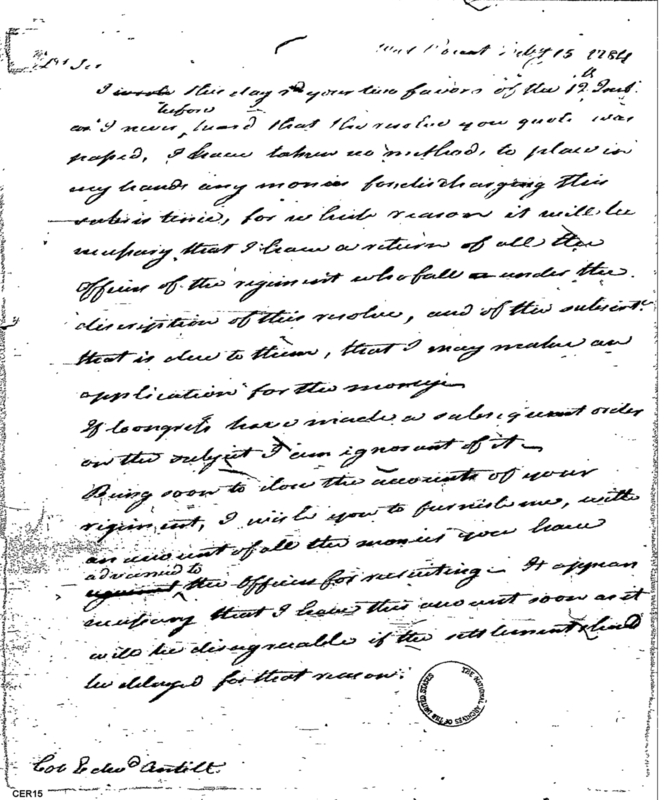 West Point Feby 15 1784
Dr Sir
I wrote this day rd your two favors of the 12th Inst.
before
as I never heard that the resolve you quote was
passed, I have taken no method, to place in
my hands any monies for discharging this
subsistence, for which reason it will be
necessary that I have a return of all the
Officers of the regiment who fall under the
discription of this resolve, and of the subsist.
that is due to them, that I may make an
application for the money
If Congress have made a subsequent order
on the subject I am ignorant of it
Being soon to close the accounts of your
regiment, I wish you to furnish me, with
an account of all the monies you have
advanced to
against the Officers for recruiting It appears
necessary that I have this account soon as it
will be disagreeable if the settlement should
be delayed for that reason.
THE NATIONAL ARCHIVES OF THE UNITED STATES
Col Edwd Antill
CER15